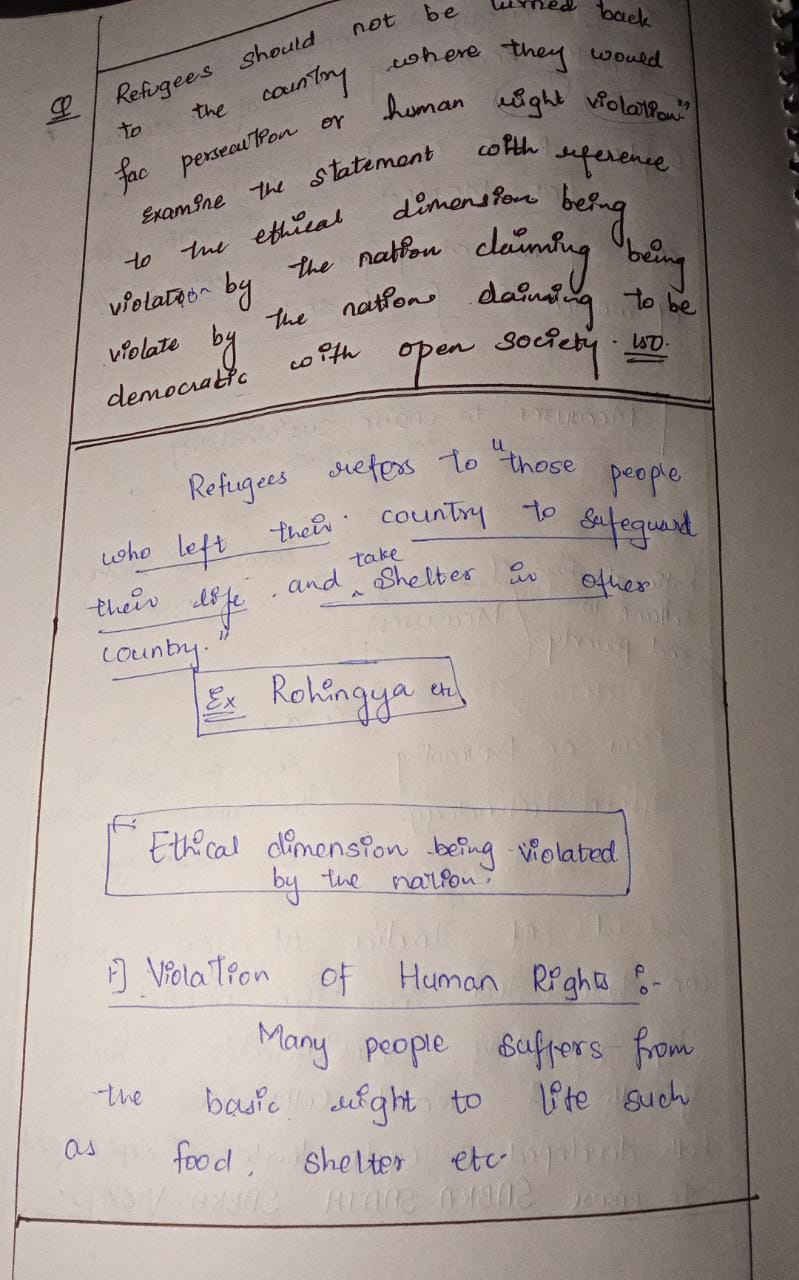 Refugees should not be turned back
Q to the country where they would
fac persecution or human right violation"
Examine the statement with reference
to the ethical dimension being
violation by the nation claiming being
violate by the nations claiming to be
democratic with open society. 150.
Refugees refers to "those people
who left their country to safeguard
their life and take shelter in other
country."
Ex Rohingya etc
Ethical dimension being violated
by the nation.
1] Violation of Human Rights :-
Many people suffers from
the basic right to life such
as food, shelter etc.